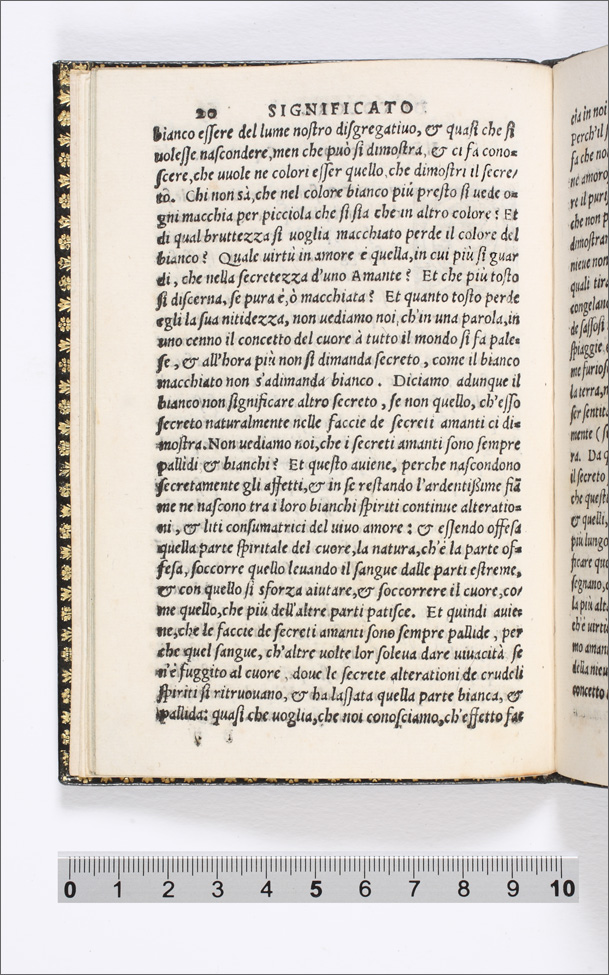 20 SIGNIFICATO
bianco eſſere del lume noſtro diſgregatiuo, & quaſi che ſi
uoleſſe naſcondere, men che può ſi dimoſtra, & ci fa cono=
ſcere, che uuole ne colori eſſer quello, che dimoſtri il ſecre=
to. Chi non sà, che nel colore bianco più preſto ſi uede o=
gni macchia per picciola che ſi ſia che in altro colore? Et
di qual bruttezza ſi uoglia macchiato perde il colore del
bianco? Quale uirtù in amore è quella, in cui più ſi guar
di, che nella ſecretezza d'uno Amante? Et che più toſto
ſi diſcerna, ſe pura è, ò macchiata? Et quanto toſto perde
egli la ſua nitidezza, non uediamo noi, ch'in una parola, in
uno cenno il concetto del cuore à tutto il mondo ſi fa pale=
ſe, & all'hora più non ſi dimanda ſecreto, come il bianco
macchiato non s'adimanda bianco. Diciamo adunque il
bianco non ſignificare altro ſecreto, ſe non quello, ch'eſſo
ſecreto naturalmente nelle faccie de ſecreti amanti ci di=
moſtra. Non uediamo noi, che i ſecreti amanti ſono ſempre
pallidi & bianchi? Et queſto auiene, perche naſcondono
ſecretamente gli affetti, & in ſe reſtando l'ardentißime fiã
me ne naſcono tra i loro bianchi ſpiriti continue alteratio=
ni, & liti conſumatrici del uiuo amore: & eſſendo offeſa
quella parte ſpiritale del cuore, la natura, ch'è la parte of=
feſa, ſoccorre quello leuando il ſangue dalle parti eſtreme,
& con quello ſi sforza aiutare, & ſoccorrere il cuore, co=
me quello, che più dell'altre parti patiſce. Et quindi auie=
ne, che le faccie de ſecreti amanti ſono ſempre pallide, per
che quel ſangue, ch'altre uolte lor ſoleua dare uiuacità ſe
n'è fuggito al cuore, doue le ſecrete alterationi de crudeli
ſpiriti ſi ritruouano, & ha laſſata quella parte bianca, &
pallida: quaſi che uoglia, che noi conoſciamo, ch'effetto fac
0 1 2 3 4 5 6 7 8 9 10